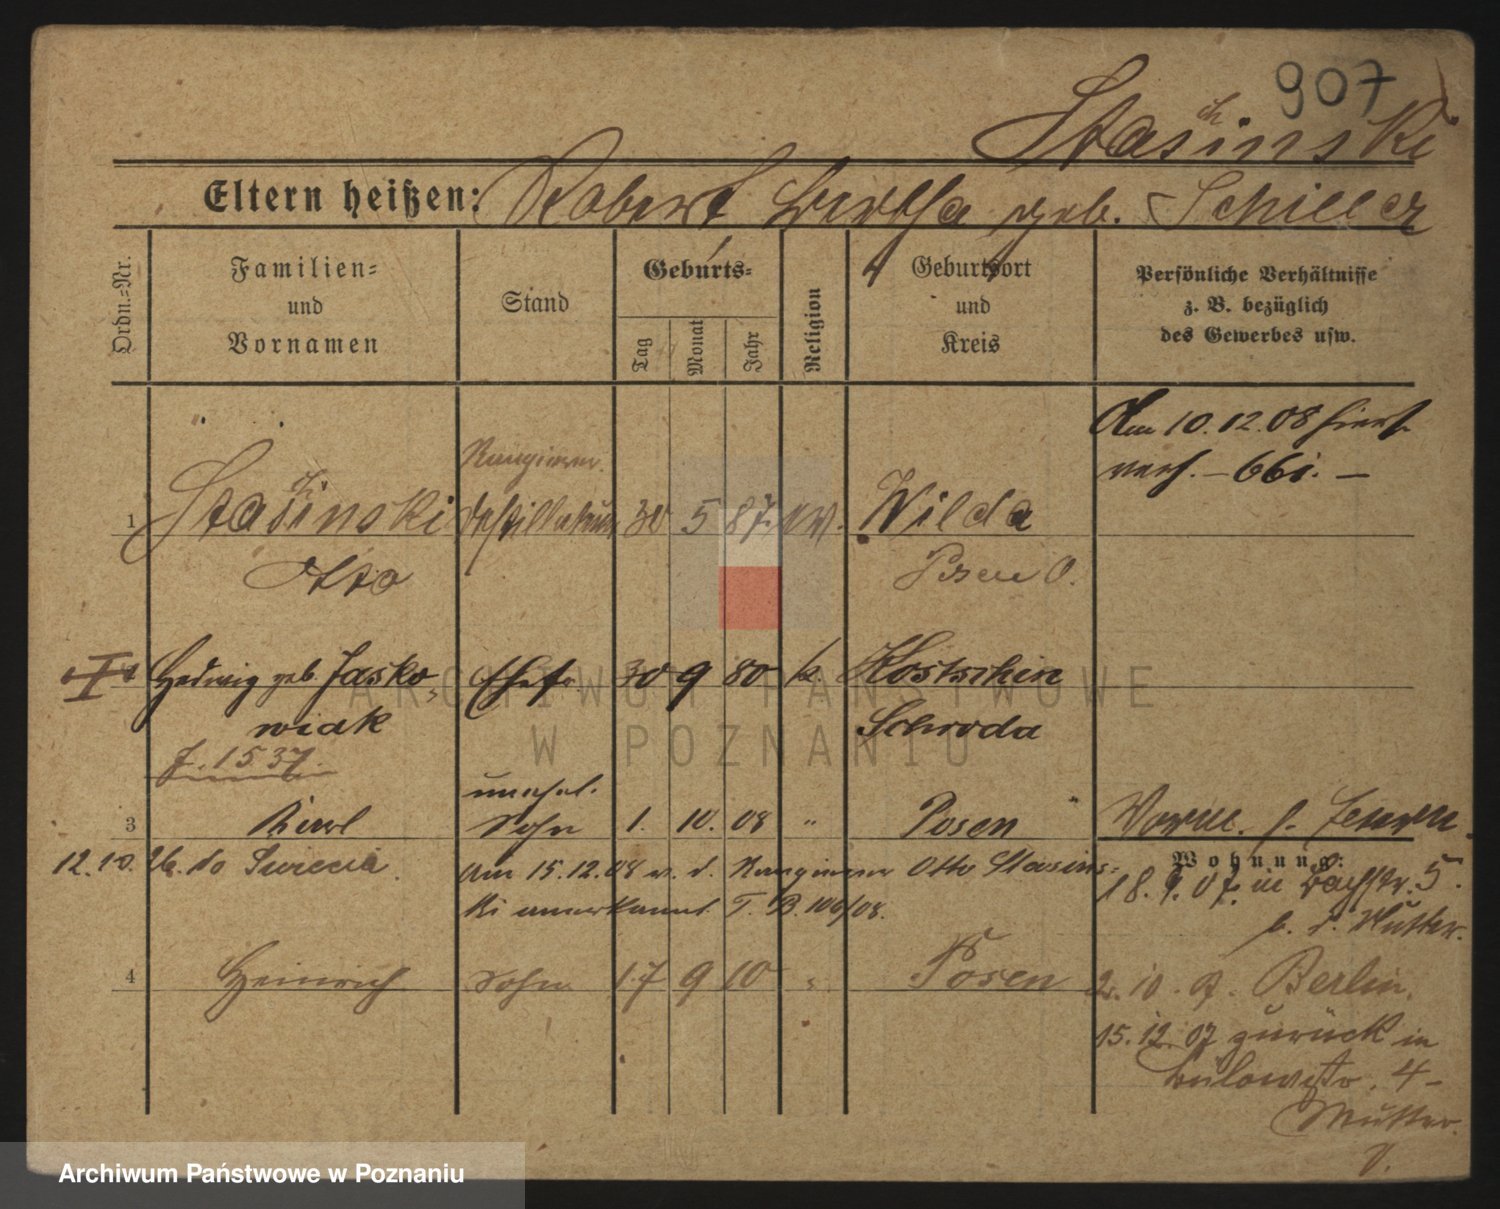 907
ch
Stasinski
Eltern heißen: Robert Bertha geb. Schiller
Ordn.-Nr.
Familien-
und
Vornamen
Stand
Geburts-
Tag
Monat
Jahr
Religion
Geburtsort
und
Kreis
Persönliche Verhältnisse
z. B. bezüglich
des Gewerbes usw.
Am 10.12.08 hier
verh. – 661. –
Rangierer
1 Stasinski 30 5 87. Wilda
Otto Posen O.
Hedwig geb. Jasko- Ehefr. 30 9 80 k. Kostschin
wiak Schroda
J. 1537.
unehel.
3 Sohn 1. 10. 08 " Posen
12.10.
Wohnung:
am 15.12.08 v. d. Rangierer Otto Stasins-
ki anerkannt T. B. 106/08.
18. 9. 07. in Bachstr. 5.
b. d. Mutter.
4 Heinrich Sohn 17 9 10 " Posen
2. 10. 07. Berlin.
15.12.07 zurück in
Bülowstr. 4 -
Mutter.
ARCHIWUM PAŃSTWOWE
W POZNANIU
Archiwum Państwowe w Poznaniu